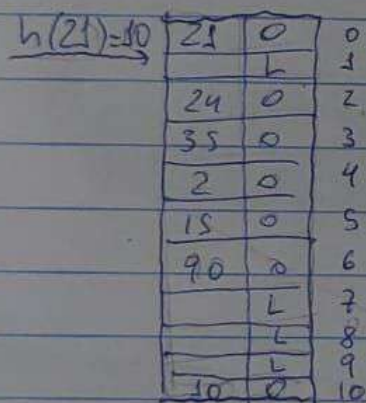 h(21)=10 21 O 0
L 1
24 O 2
35 O 3
2 O 4
15 O 5
90 O 6
L 7
L 8
L 9
10 O 10